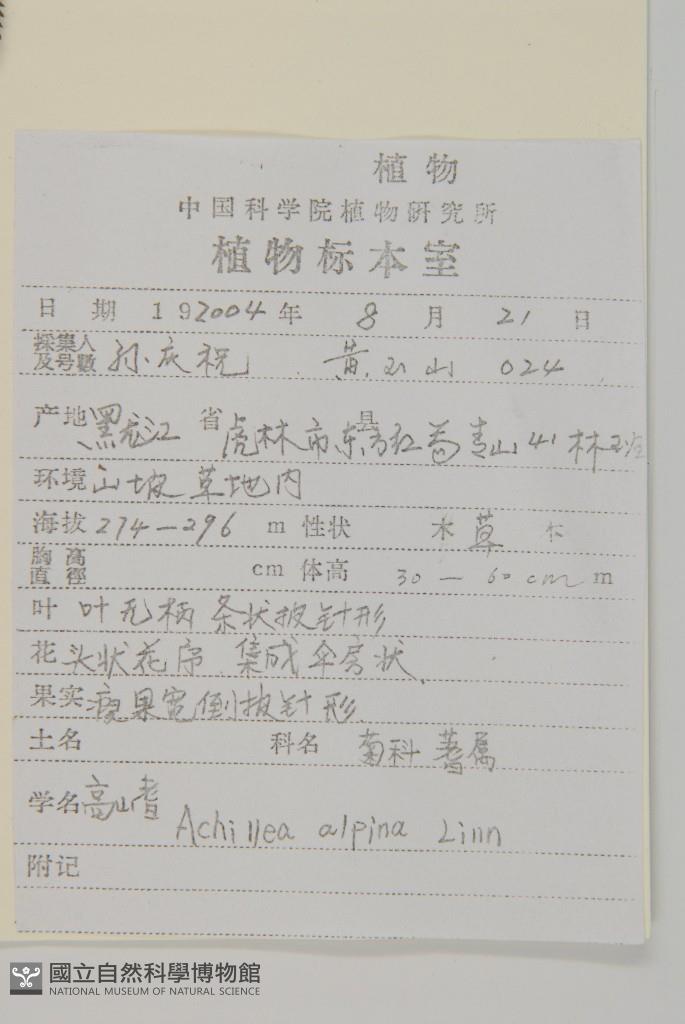 植物
中国科学院植物研究所
植物标本室
日期 192004年 8月 21日
採集人及号數 孙庆祝 黄玉山 024
产地 黑龙江省 虎林市东方红 县 青山 41 林班
环境 山坡草地内
海拔 274—296 m 性状 木 草 本
胸高直徑 cm 体高 30 — 60 cm m
叶 叶无柄 条状披针形
花 头状花序 集成伞房状
果实 瘦果宽倒披针形
土名 科名 菊科 蓍属
学名 高山蓍 Achillea alpina Linn
附记
國立自然科學博物館
NATIONAL MUSEUM OF NATURAL SCIENCE